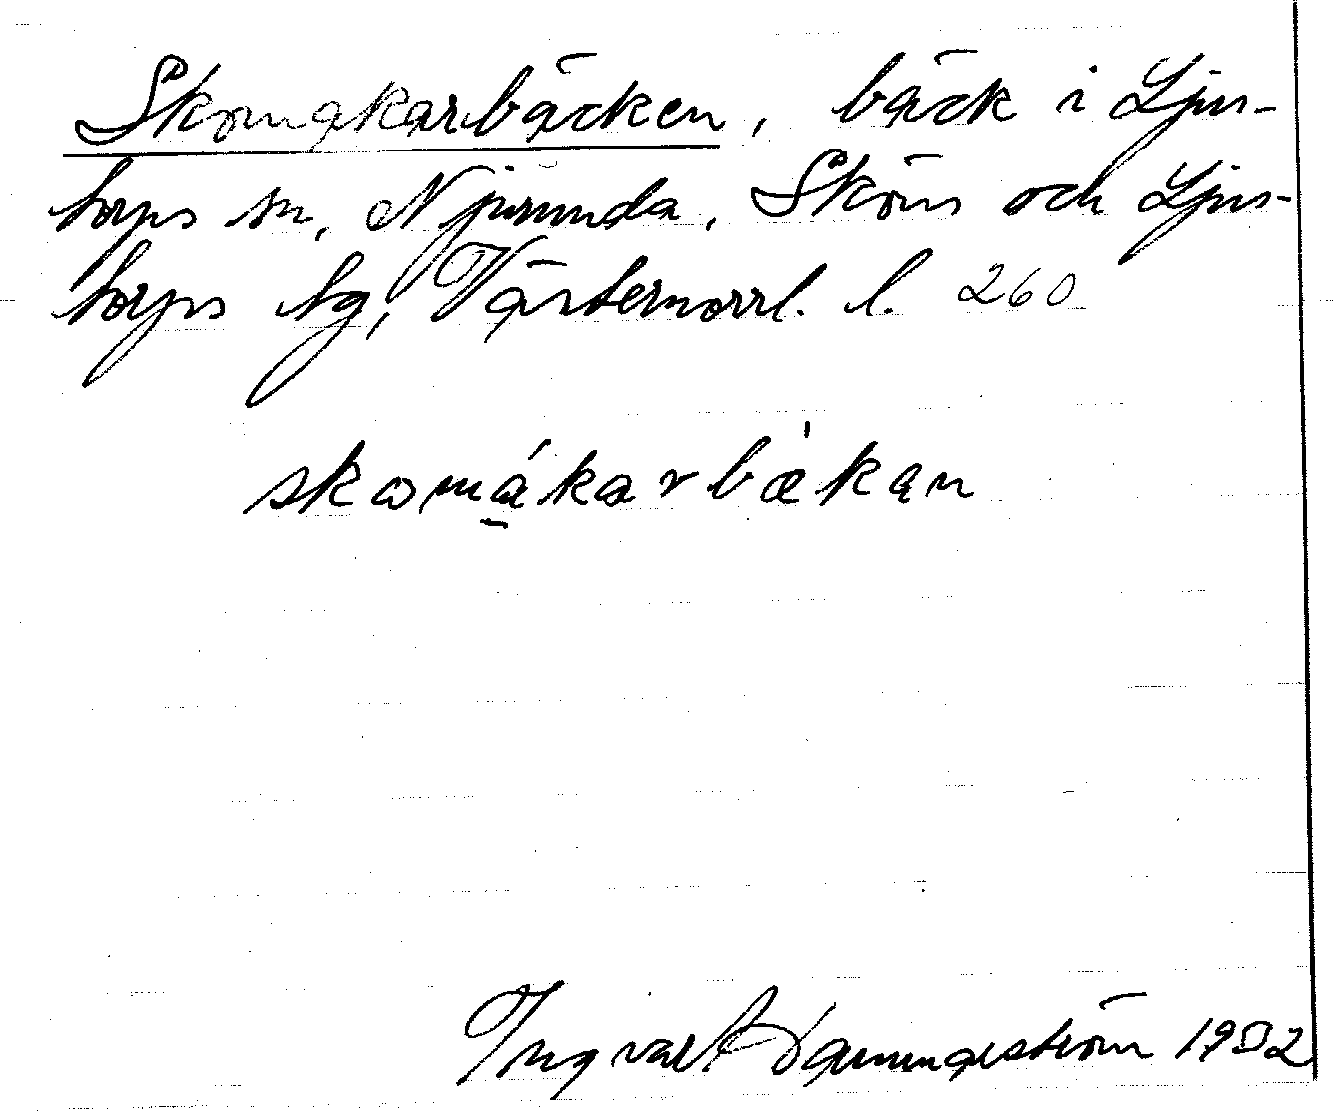 Skomakarbäcken, bäck i Ljus-
torps sn, Njurunda, Sköns och Ljus-
torps tg, Västernorrl. l. 260
skomákarbækan
Ingvar 1932